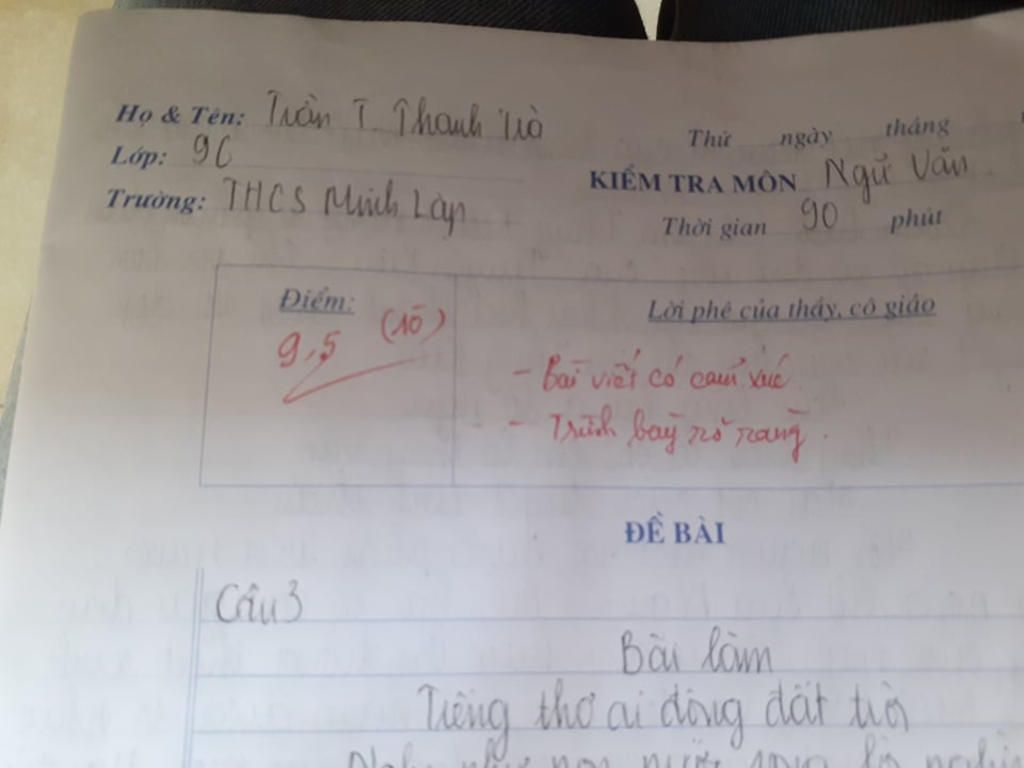 Họ & Tên: Trần T. Thanh Trà
Lớp: 9C
Trường: THCS Minh Lập
Thứ ngày tháng
KIỂM TRA MÔN Ngữ Văn
Thời gian 90 phút
Điểm:
9,5 (10)
Lời phê của thầy, cô giáo
- Bài viết có cảm xúc.
- Trình bày rõ ràng.
ĐỀ BÀI
Câu 3
Bài làm
Tiếng thơ ai động đất trời
Nghe như non nước vọng lời nghìn